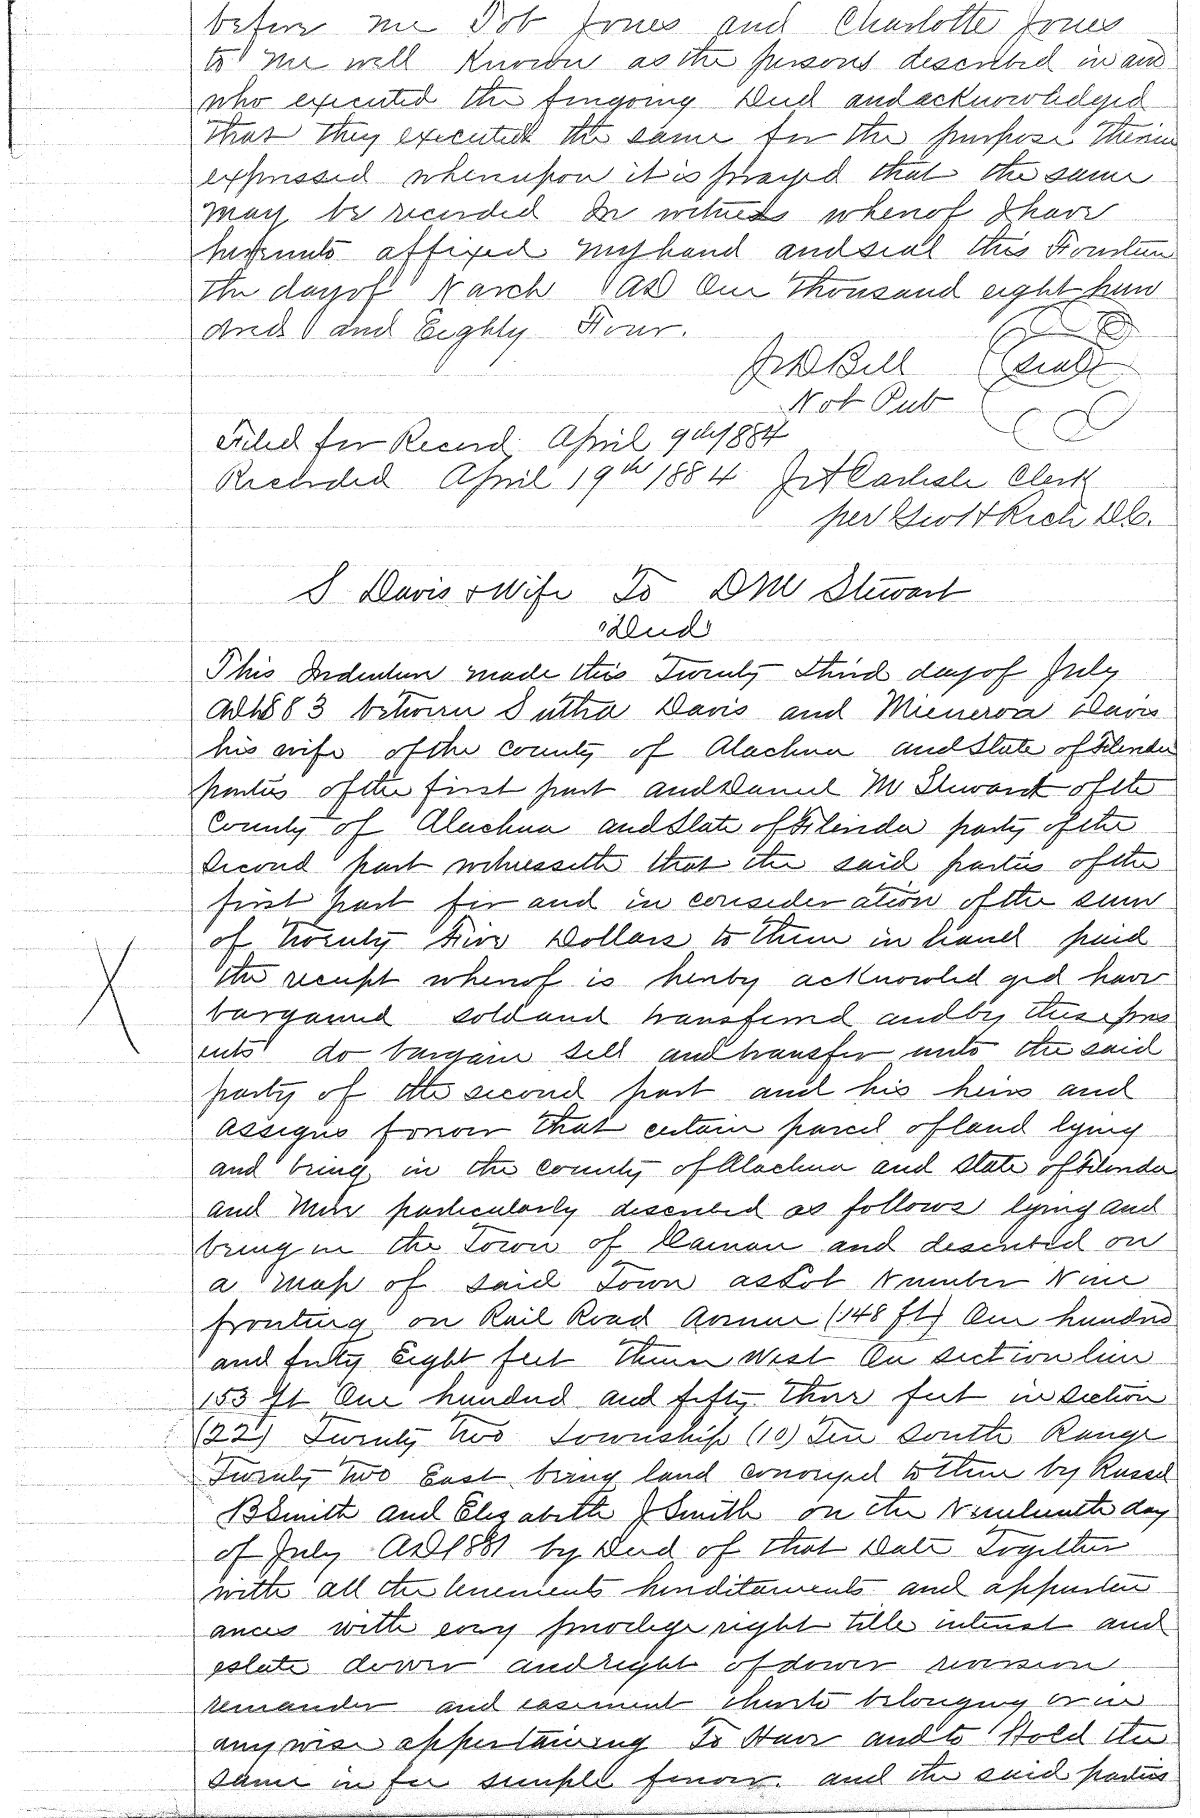 before me Job Jones and Charlotte Jones
to me well known as the persons described in and
who executed the foregoing Deed and acknowledged
that they executed the same for the purpose therein
expressed whereupon it is prayed that the same
may be recorded In witness whereof I have
hereunto affixed my hand and seal this Fourteen
the day of March AD One thousand eight hun
dred and Eighty Four.
J D Bell (seal)
Not Pub
Filed for Record April 9th 1884
Recorded April 19th 1884 J A Carlisle Clerk
per Geo H Rich D.C.
S Davis & Wife To D M Stewart
"Deed"
This Indenture made this Twenty third day of July
AD 1883 between Sutha Davis and Mienerva Davis
his wife of the county of Alachua and State of Florida
parties of the first part and Daniel M Stewart of the
County of Alachua and State of Florida party of the
second part witnesseth that the said parties of the
first part for and in consideration of the sum
of Twenty Five Dollars to them in hand paid
the receipt whereof is hereby acknowled ged have
bargained sold and transferred and by these pres
ents do bargain sell and transfer unto the said
party of the second part and his heirs and
assigns forever that certain parcel of land lying
and being in the county of Alachua and State of Florida
and more particularly described as follows lying and
being in the Town of and described on
a map of said Town as Lot Number Nine
fronting on Rail Road Avenue (148 ft) One hundred
and forty Eight feet thence West On section line
153 ft One hundred and fifty three feet in section
(22) Twenty two township (10) Ten South Range
Twenty two East being land conveyed to them by Russel
B Smith and Elizabeth J Smith on the Nineteenth day
of July AD 1881 by Deed of that Date Together
with all the tenements hereditaments and apperten
ances with every privelege right title interest and
estate dower and right of dower reversion
remainder and easement thereto belonging or in
anywise appertaining To Have and to Hold the
same in fee simple forever. and the said parties